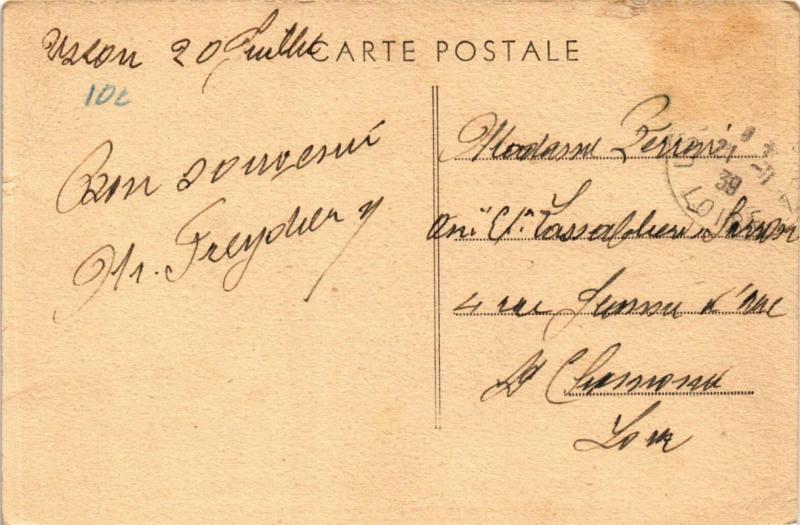 Usson 20 Juillet
CARTE POSTALE
10c
Bon souvenir
M. Freydier
Madame Perroni
4 rue Jeanne d'Arc
St Chamond
Loire
21
39
LOIRE